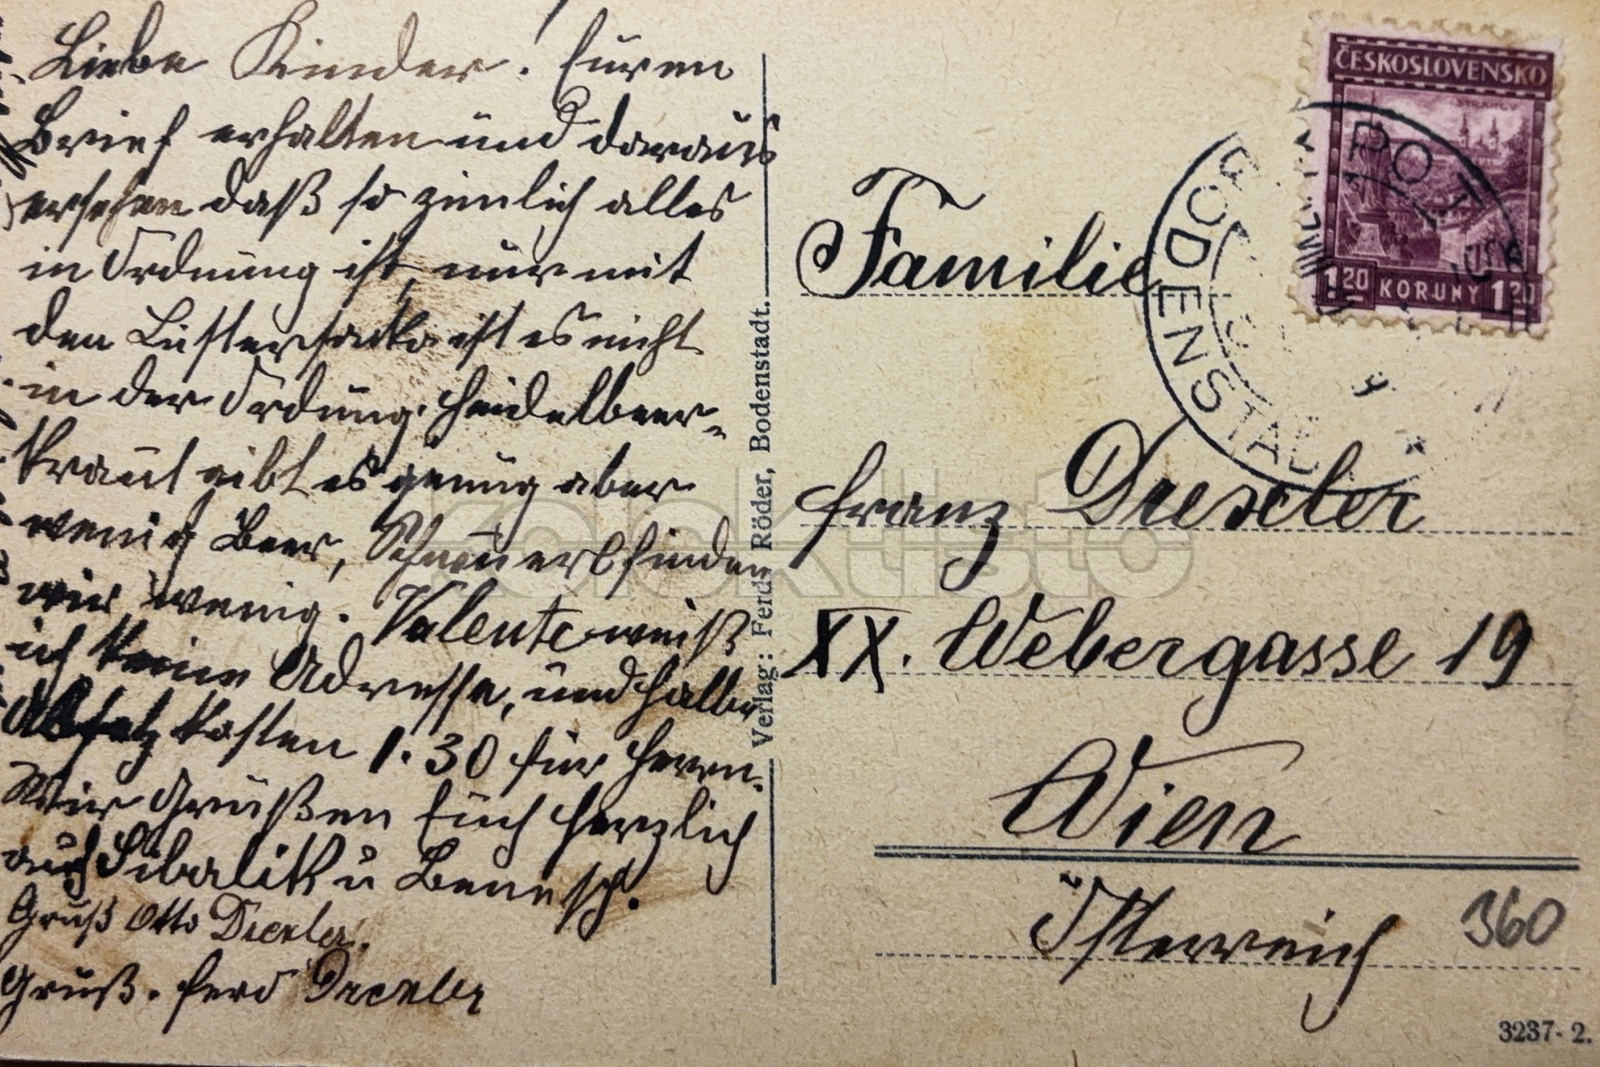 Liebe Kinder! Euren
Brief erhalten und daraus
ersehen daß so zimlich alles
in Ordnung ist, nur mit
den Lüstersacko ist es nicht
in der Ordung. Heidelbeer-
kraut gibt es genug aber
wenig Beer, Schwei erbfinden
wir wenig. Valente weiß
ich keine Adresse, und halbe
Absatz kosten 1.30 für Herrn.
Wir Grüßen Euch herzlich
auch u Benesch.
Gruß Otto Drexler.
Gruß. Ferd Drexler
Verlag: Ferd. Röder, Bodenstadt.
ČESKOSLOVENSKO
STRAHOV
1.20 KORUNY 1.20
BODENSTADT
Familie
Franz Drexler
XX. Webergasse 19
Wien
Österreich
360
3237-2.
kolektisto